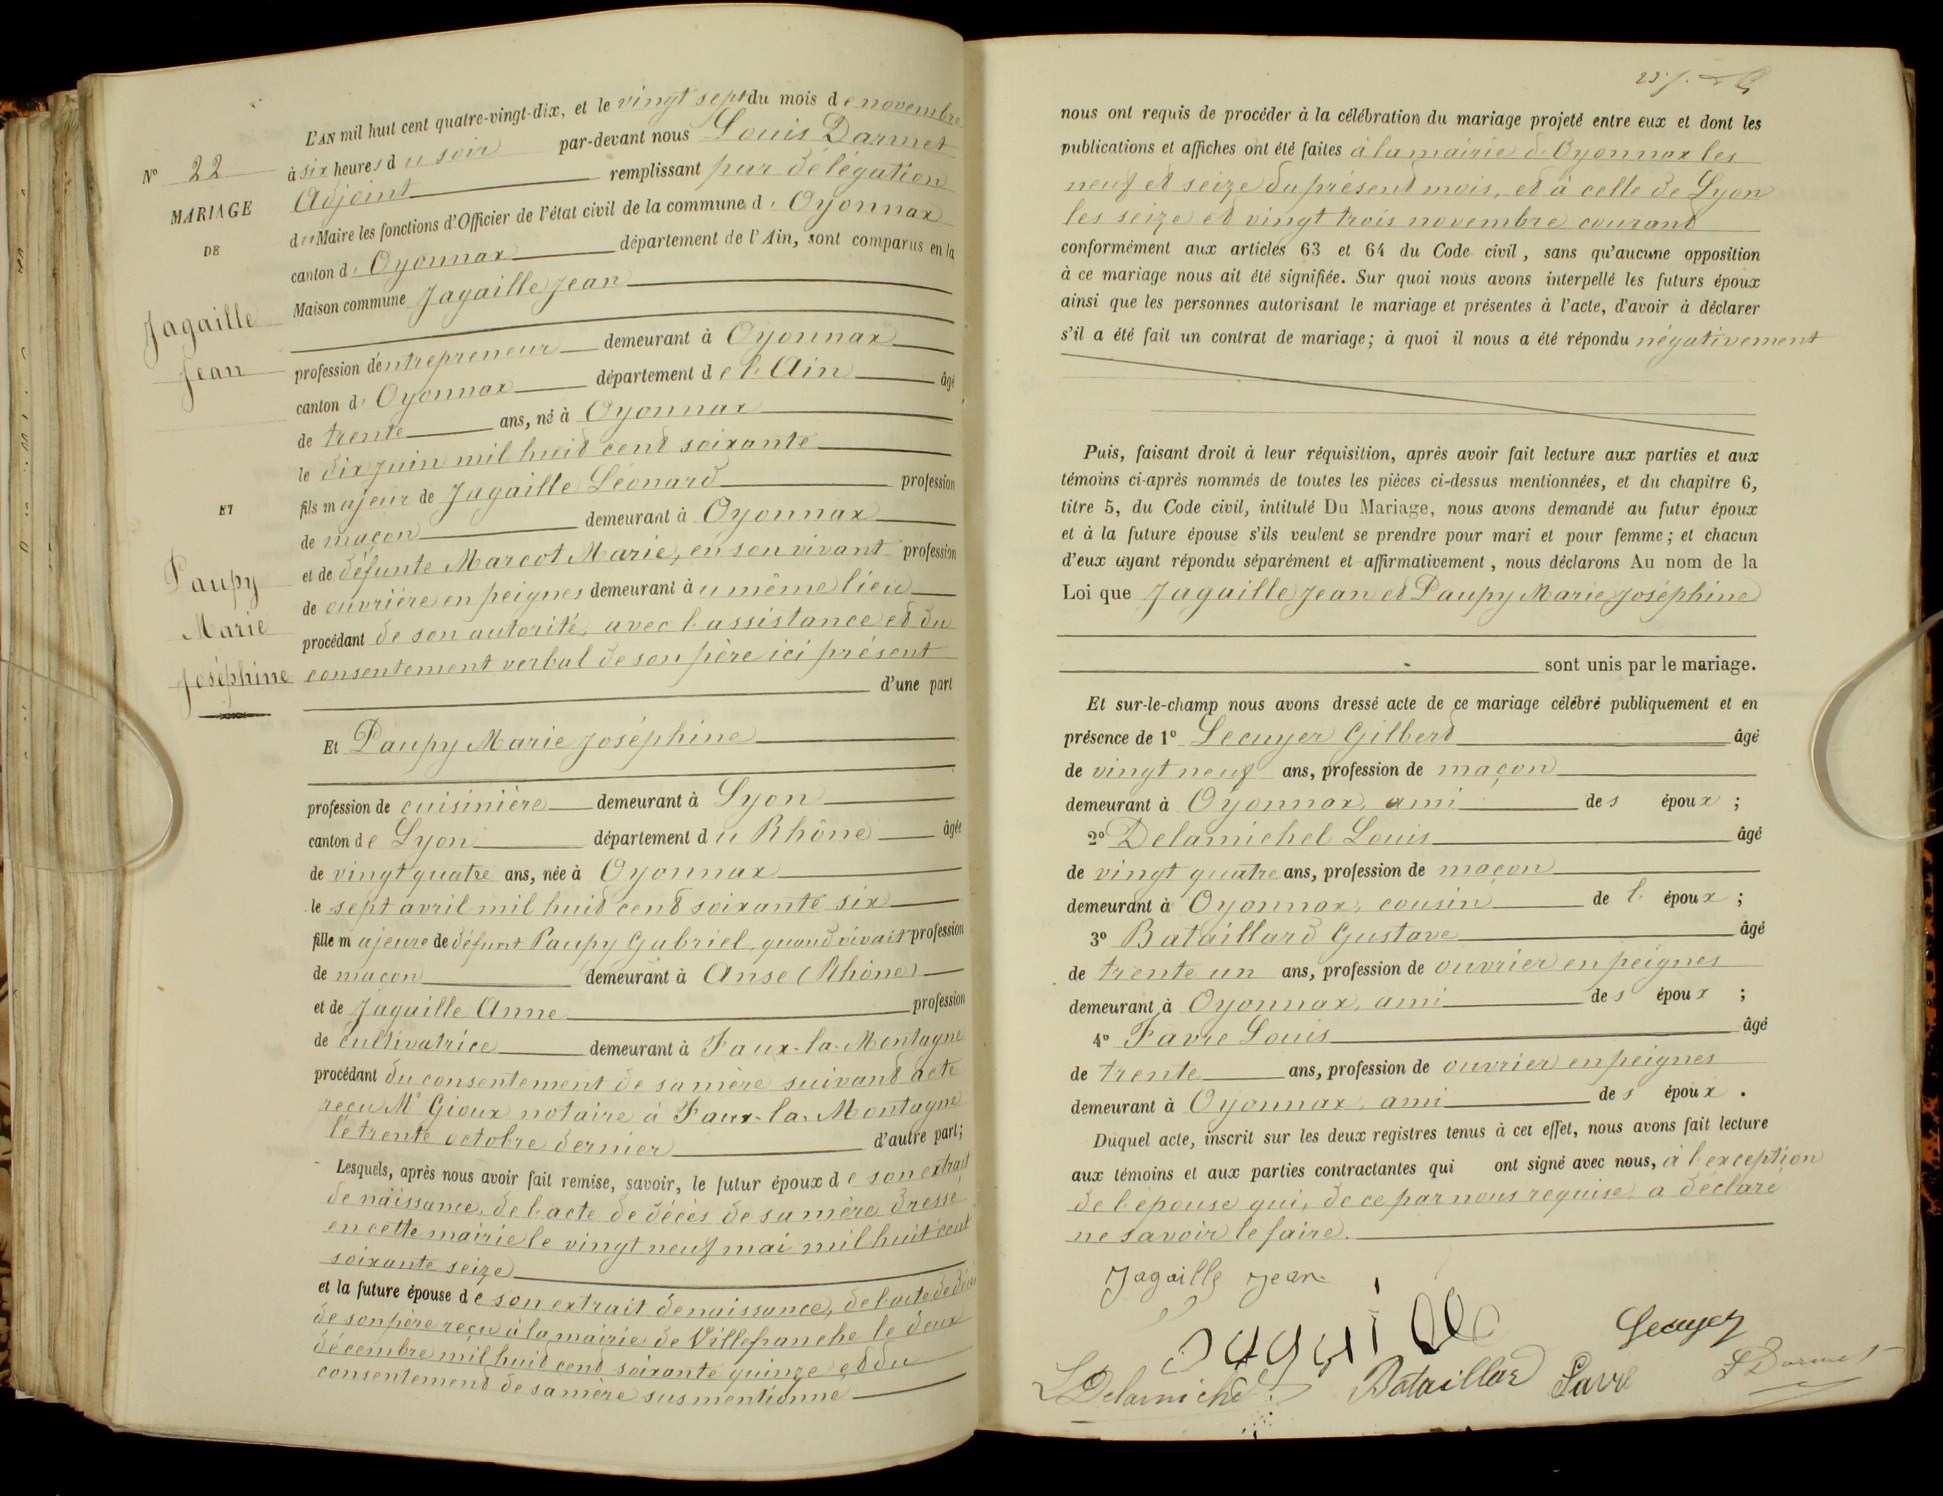 L'AN mil huit cent quatre-vingt-dix, et le vingt sept du mois de novembre
à six heures du soir par-devant nous Louis Darmet
Adjoint remplissant par délégation
du Maire les fonctions d'Officier de l'état civil de la commune d' Oyonnax
canton d' Oyonnax département de l'Ain, sont comparus en la
Maison commune Jagaille Jean
profession d'entrepreneur demeurant à Oyonnax
canton d' Oyonnax département de l'Ain âgé
de trente ans, né à Oyonnax
le dix juin mil huit cent soixante
fils majeur de Jagaille Léonard profession
de maçon demeurant à Oyonnax
et de défunte Marcot Marie, en son vivant profession
de ouvrière en peignes demeurant au même lieu
procédant de son autorité, avec l'assistance et du
consentement verbal de son père ici présent
d'une part
Et Paupy Marie Joséphine
profession de cuisinière demeurant à Lyon
canton de Lyon département du Rhône âgée
de vingt quatre ans, née à Oyonnax
le sept avril mil huit cent soixante six
fille majeure de défunt Paupy Gabriel, quand vivait profession
de maçon demeurant à Anse (Rhône)
et de Jagaille Anne profession
de cultivatrice demeurant à Faux-la-Montagne
procédant du consentement de sa mère suivant acte
reçu Me Gioux notaire à Faux-la-Montagne
le trente octobre dernier d'autre part;
Lesquels, après nous avoir fait remise, savoir, le futur époux de son extrait
de naissance, de l'acte de décès de sa mère dressé
en cette mairie le vingt neuf mai mil huit cent
soixante seize
et la future épouse de son extrait de naissance, de l'acte de décès
de son père reçu à la mairie de Villefranche le deux
décembre mil huit cent soixante quinze et du
consentement de sa mère sus mentionné
N° 22
MARIAGE
DE
Jagaille
Jean
ET
Paupy
Marie
Joséphine
nous ont requis de procéder à la célébration du mariage projeté entre eux et dont les
publications et affiches ont été faites à la mairie d'Oyonnax les
neuf et seize du présent mois, et à celle de Lyon
les seize et vingt trois novembre courant
conformément aux articles 63 et 64 du Code civil, sans qu'aucune opposition
à ce mariage nous ait été signifiée. Sur quoi nous avons interpellé les futurs époux
ainsi que les personnes autorisant le mariage et présentes à l'acte, d'avoir à déclarer
s'il a été fait un contrat de mariage; à quoi il nous a été répondu négativement
Puis, faisant droit à leur réquisition, après avoir fait lecture aux parties et aux
témoins ci-après nommés de toutes les pièces ci-dessus mentionnées, et du chapitre 6,
titre 5, du Code civil, intitulé Du Mariage, nous avons demandé au futur époux
et à la future épouse s'ils veulent se prendre pour mari et pour femme; et chacun
d'eux ayant répondu séparément et affirmativement, nous déclarons Au nom de la
Loi que Jagaille Jean et Paupy Marie Joséphine
sont unis par le mariage.
Et sur-le-champ nous avons dressé acte de ce mariage célébré publiquement et en
présence de 1° Lecuyer Gilbert âgé
de vingt neuf ans, profession de maçon
demeurant à Oyonnax, ami des époux;
2° Delamichel Louis âgé
de vingt quatre ans, profession de maçon
demeurant à Oyonnax, cousin de l'époux;
3° Bataillard Gustave âgé
de trente un ans, profession de ouvrier en peignes
demeurant à Oyonnax, ami des époux;
4° Favre Louis âgé
de trente ans, profession de ouvrier en peignes
demeurant à Oyonnax, ami des époux.
Duquel acte, inscrit sur les deux registres tenus à cet effet, nous avons fait lecture
aux témoins et aux parties contractantes qui ont signé avec nous, à l'exception
de l'épouse qui, de ce par nous requise, a déclaré
ne savoir le faire.
Jagaille Jean
Jagaille
Lecuyer
L Delamichel
Bataillard
Favre
L Darmet